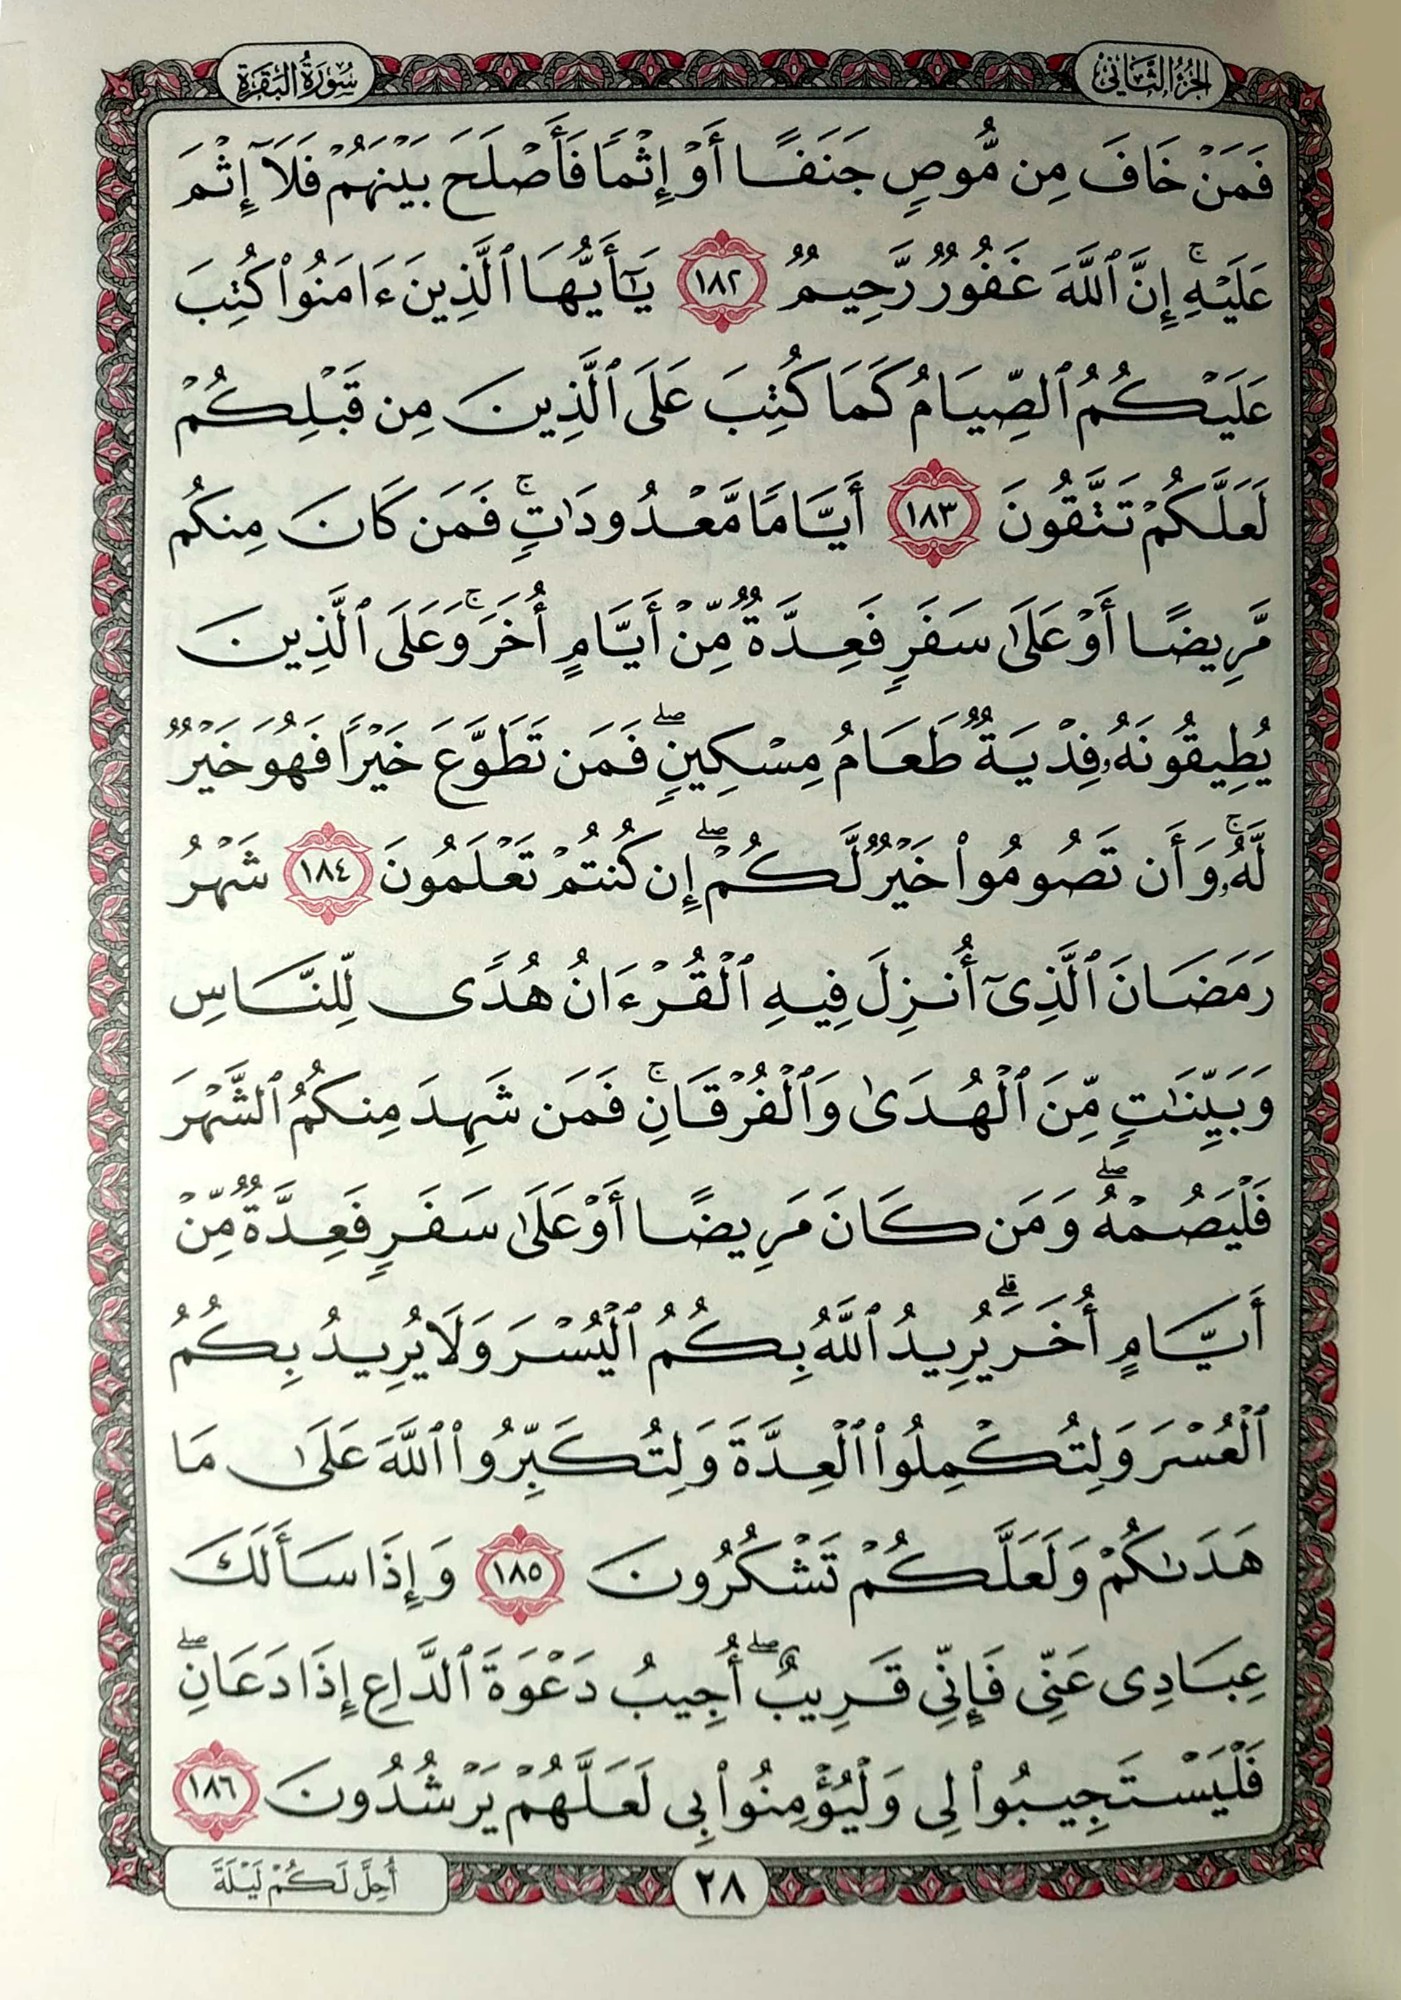 الجزء الثاني
سورة البقرة
فَمَنْ خَافَ مِن مُّوصٍ جَنَفًا أَوْ إِثْمًا فَأَصْلَحَ بَيْنَهُمْ فَلَآ إِثْمَ
عَلَيْهِ ۚ إِنَّ ٱللَّهَ غَفُورٌ رَّحِيمٌ ١٨٢ يَٰٓأَيُّهَا ٱلَّذِينَ ءَامَنُوا۟ كُتِبَ
عَلَيْكُمُ ٱلصِّيَامُ كَمَا كُتِبَ عَلَى ٱلَّذِينَ مِن قَبْلِكُمْ
لَعَلَّكُمْ تَتَّقُونَ ١٨٣ أَيَّامًا مَّعْدُودَٰتٍ ۚ فَمَن كَانَ مِنكُم
مَّرِيضًا أَوْ عَلَىٰ سَفَرٍ فَعِدَّةٌ مِّنْ أَيَّامٍ أُخَرَ ۚ وَعَلَى ٱلَّذِينَ
يُطِيقُونَهُۥ فِدْيَةٌ طَعَامُ مِسْكِينٍ ۖ فَمَن تَطَوَّعَ خَيْرًا فَهُوَ خَيْرٌ
لَّهُۥ ۚ وَأَن تَصُومُوا۟ خَيْرٌ لَّكُمْ ۖ إِن كُنتُمْ تَعْلَمُونَ ١٨٤ شَهْرُ
رَمَضَانَ ٱلَّذِىٓ أُنزِلَ فِيهِ ٱلْقُرْءَانُ هُدًى لِّلنَّاسِ
وَبَيِّنَٰتٍ مِّنَ ٱلْهُدَىٰ وَٱلْفُرْقَانِ ۚ فَمَن شَهِدَ مِنكُمُ ٱلشَّهْرَ
فَلْيَصُمْهُ ۖ وَمَن كَانَ مَرِيضًا أَوْ عَلَىٰ سَفَرٍ فَعِدَّةٌ مِّنْ
أَيَّامٍ أُخَرَ ۗ يُرِيدُ ٱللَّهُ بِكُمُ ٱلْيُسْرَ وَلَا يُرِيدُ بِكُمُ
ٱلْعُسْرَ وَلِتُكْمِلُوا۟ ٱلْعِدَّةَ وَلِتُكَبِّرُوا۟ ٱللَّهَ عَلَىٰ مَا
هَدَىٰكُمْ وَلَعَلَّكُمْ تَشْكُرُونَ ١٨٥ وَإِذَا سَأَلَكَ
عِبَادِى عَنِّى فَإِنِّى قَرِيبٌ ۖ أُجِيبُ دَعْوَةَ ٱلدَّاعِ إِذَا دَعَانِ ۖ
فَلْيَسْتَجِيبُوا۟ لِى وَلْيُؤْمِنُوا۟ بِى لَعَلَّهُمْ يَرْشُدُونَ ١٨٦
٢٨
أُحِلَّ لَكُمْ لَيْلَةَ